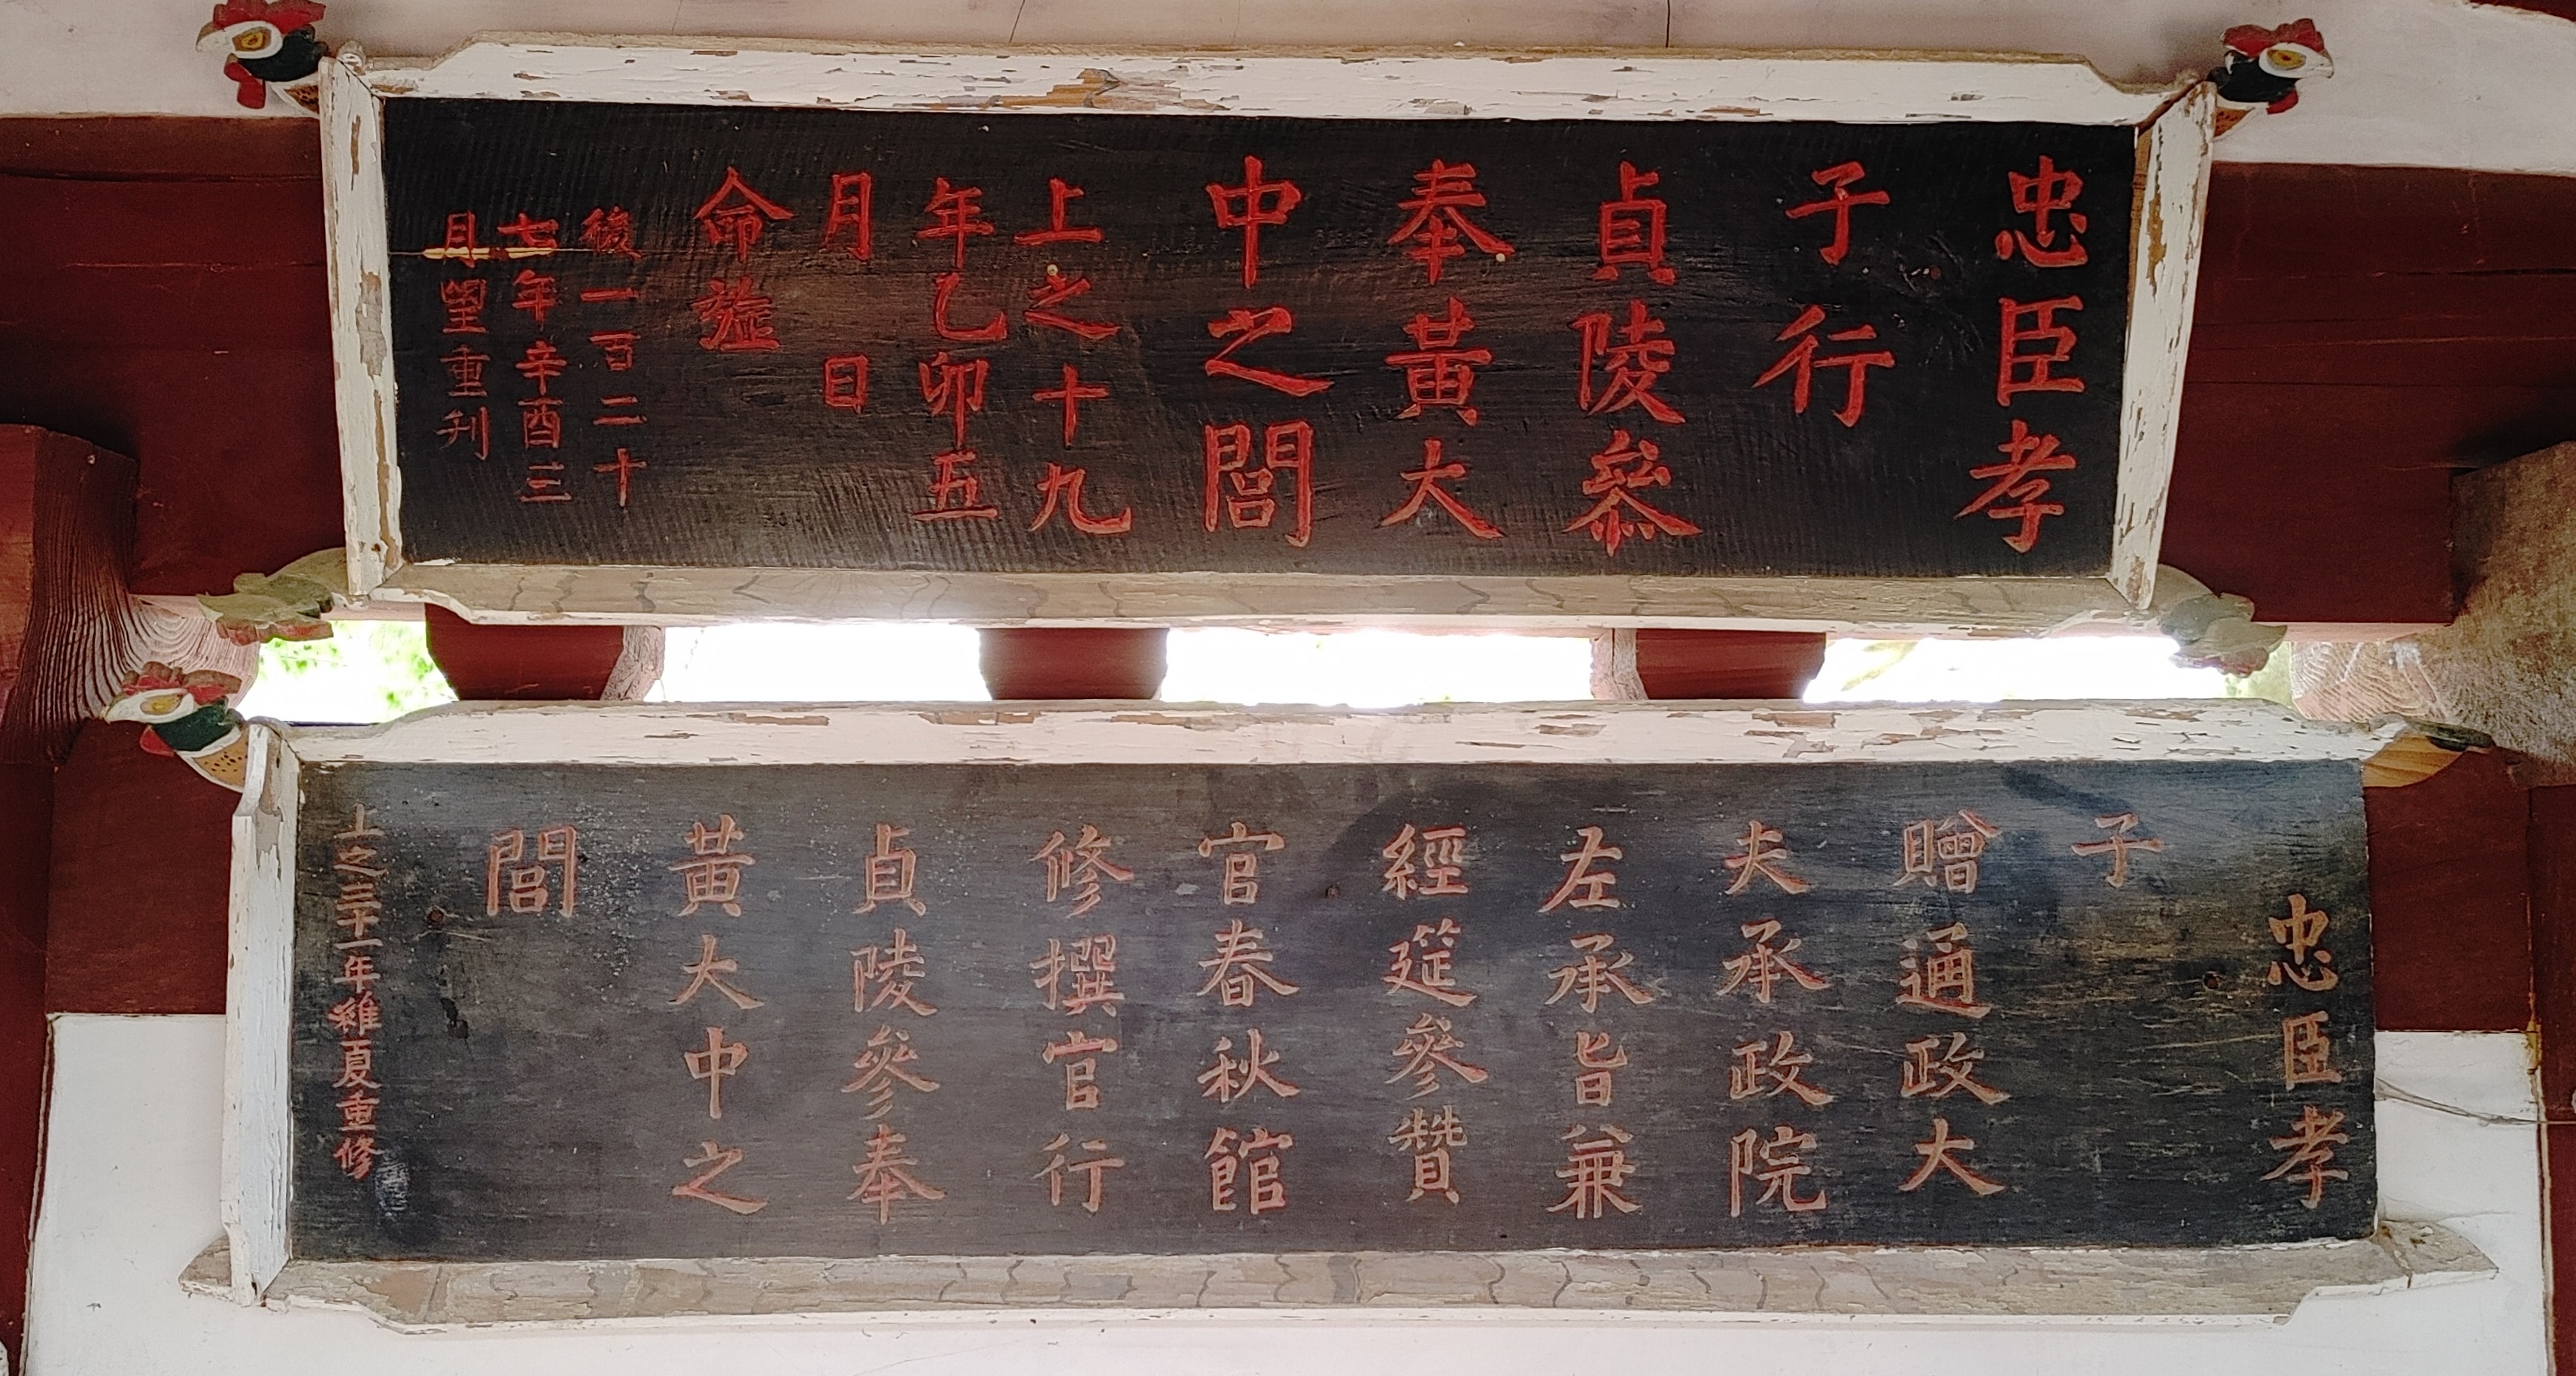 忠臣孝
子行
貞陵參
奉黃大
中之閭
上之十九
年乙卯五
月日
命旌
後一百二十
七年辛酉三
月望重刋
忠臣孝
子
贈通政大
夫承政院
左承旨兼
經筵參贊
官春秋館
修撰官行
貞陵參奉
黃大中之
閭
上之三十一年維夏重修